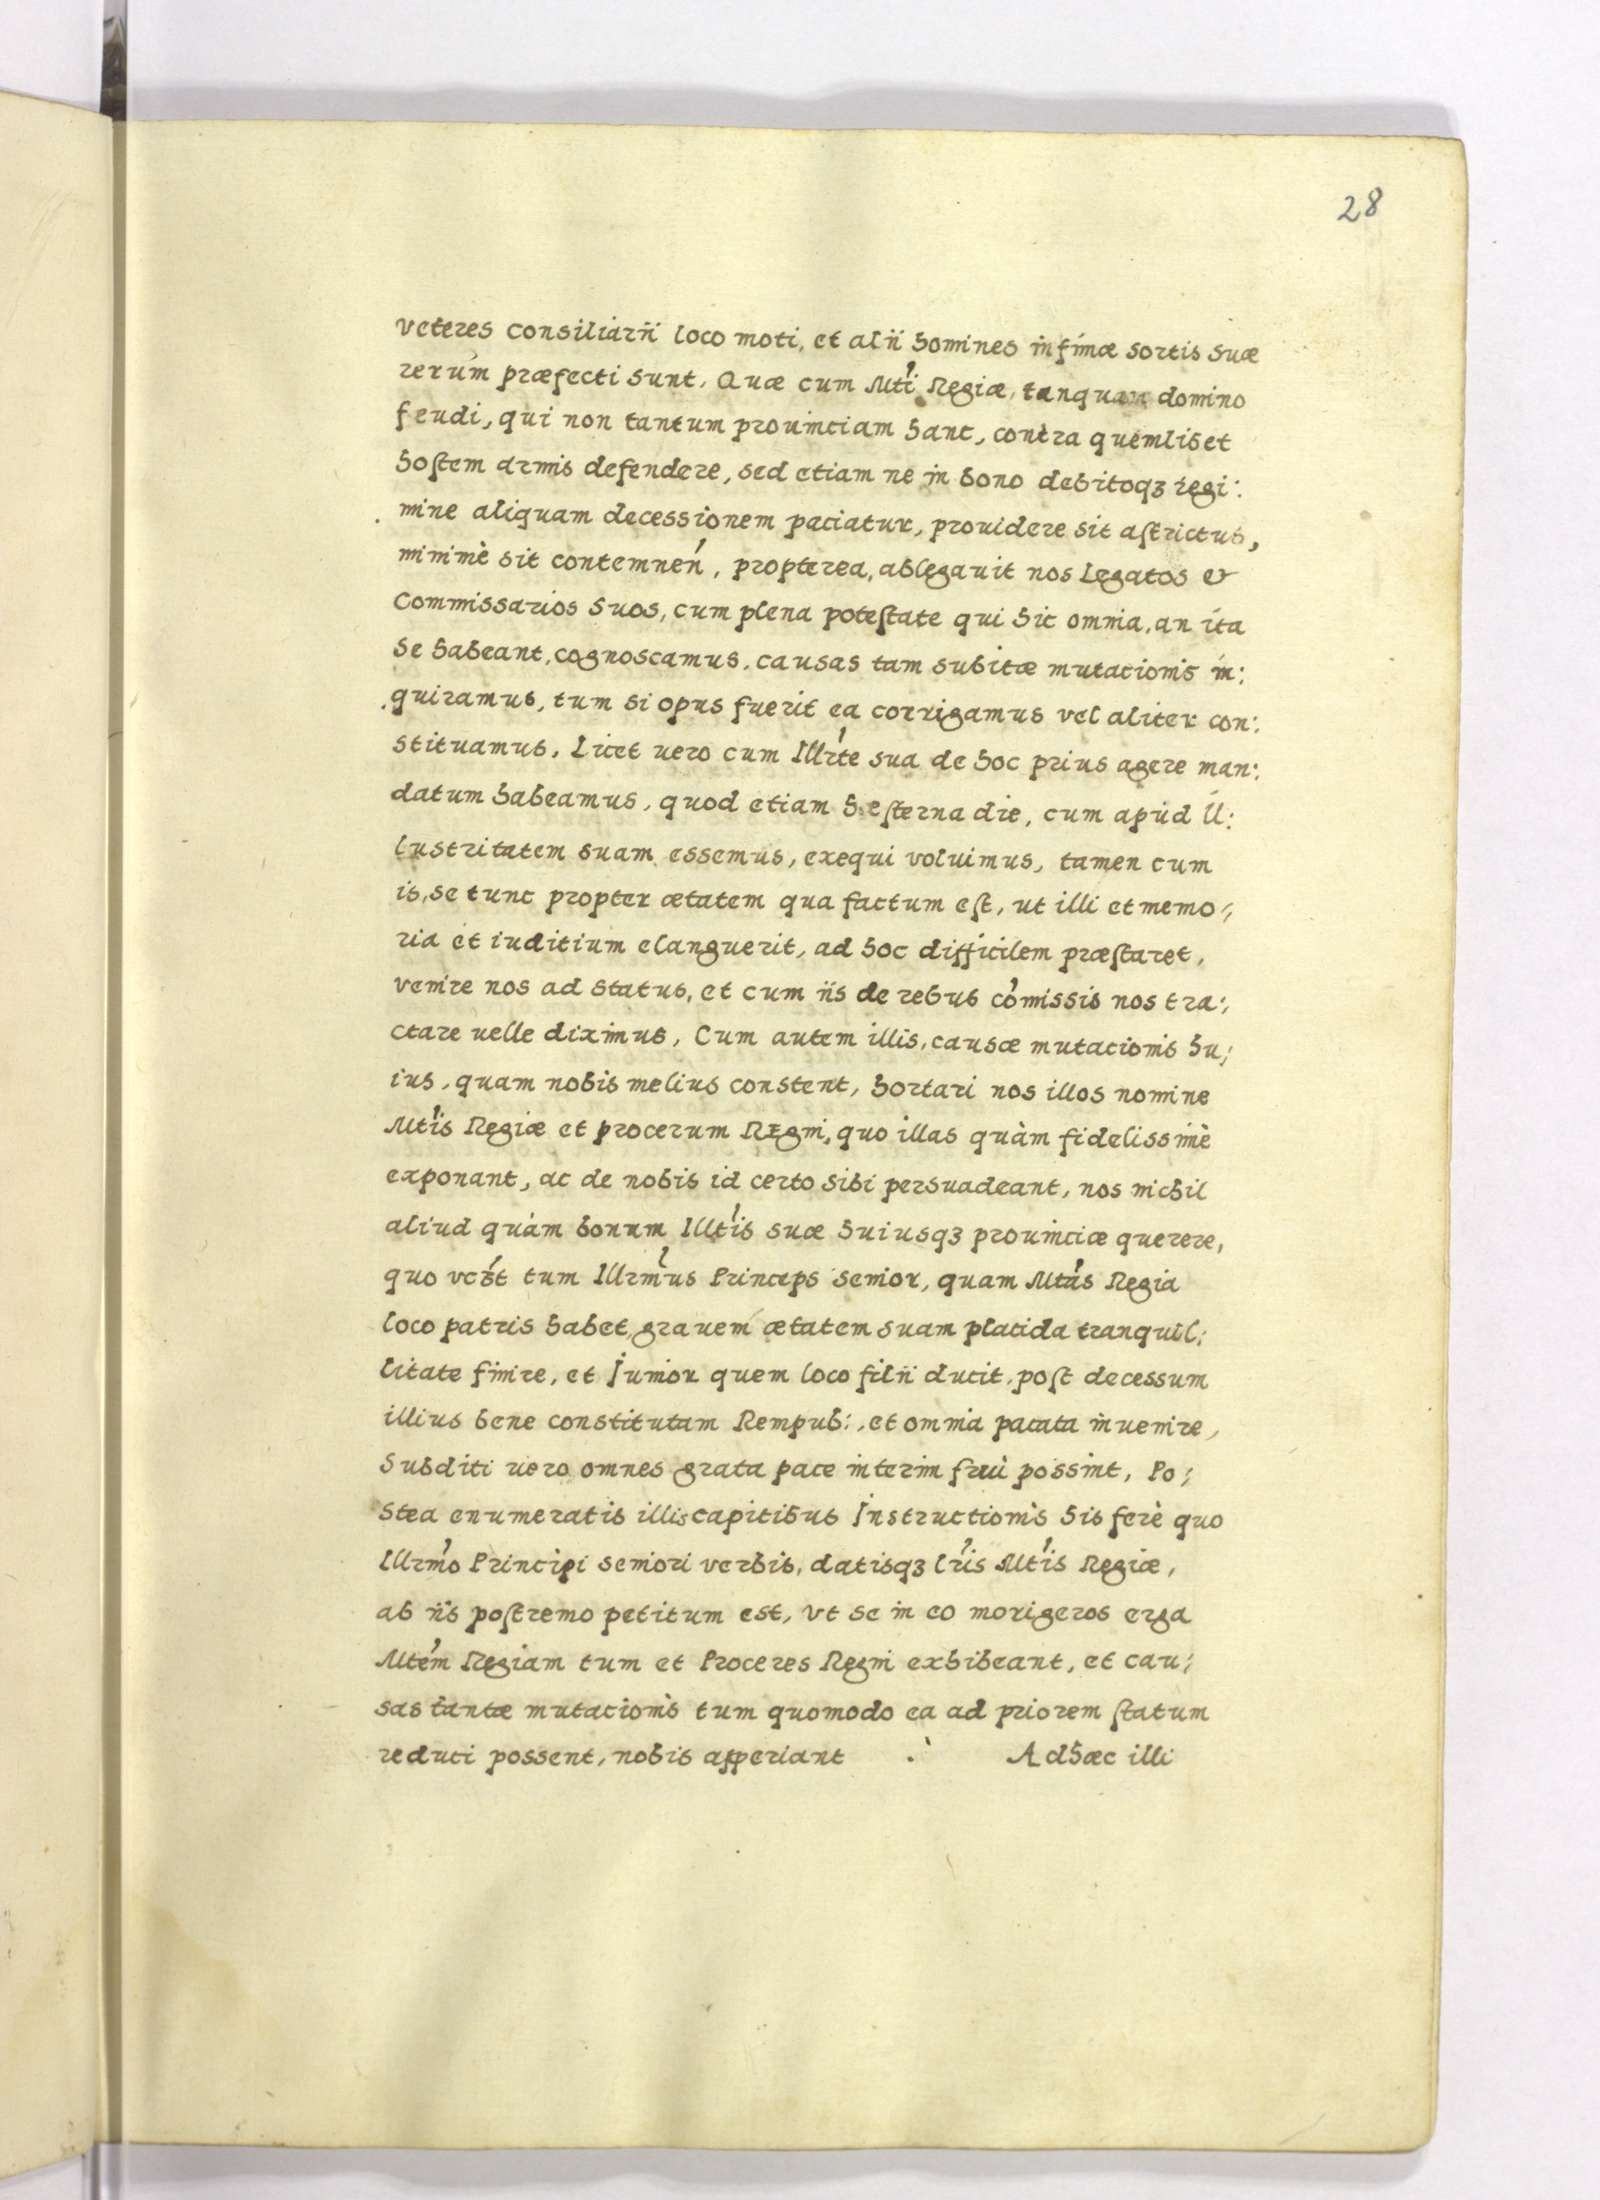 28
veteres consiliarii loco moti, et alii homines infimæ sortis suæ
rerum præfecti sunt, Quæ cum Mti Regiæ, tanquam domino
feudi, qui non tantum prouinciam hanc, contra quemlibet
hostem armis defendere, sed etiam ne in bono debitoqꝫ regi:
mine aliquam decessionem paciatur, prouidere sit astrictus,
minimè sit contemnen, propterea, ablegauit nos Legatos &
Commissarios suos, cum plena potestate qui hic omnia, an ita
se habeant, cognoscamus, causas tam subitæ mutacionis in:
quiramus, tum si opus fuerit ea corrigamus vel aliter con:
stituamus, Licet uero cum Illrte sua de hoc prius agere man:
datum habeamus, quod etiam hesterna die, cum apud Il:
lustritatem suam essemus, exequi voluimus, tamen cum
is, se tunc propter ætatem qua factum est, ut illi et memo:
ria et iuditium elanguerit, ad hoc difficilem præstaret,
venire nos ad status, et cum iis de rebus comissis nos tra:
ctare uelle diximus, Cum autem illis, causæ mutacionis hu:
ius, quam nobis melius constent, hortari nos illos nomine
Mtis Regiæ et procerum REgni, quo illas quàm fidelissimè
exponant, ac de nobis id certo sibi persuadeant, nos nichil
aliud quàm bonum Illtis suæ huiusqꝫ prouinciæ querere,
quo tum Illrmus Princeps senior, quam Mtas Regia
loco patris habet, grauem ætatem suam placida tranquil:
litate finire, et Iunior quem loco filii ducit, post decessum
illius bene constitutam Rempub:, et omnia pacata inuenire,
Subditi uero omnes grata pace interim frui possint, Po:
stea enumeratis illis capitibus Instructionis his ferè quo
Illrmo Principi seniori verbis, datisqꝫ lris Mtis Regiæ,
ab iis postremo petitum est, vt se in eo morigeros erga
Mtem Regiam tum et Proceres Regni exhibeant, et cau:
sas tantæ mutacionis tum quomodo ea ad priorem statum
reduci possent, nobis apperiant . Ad hæc illi